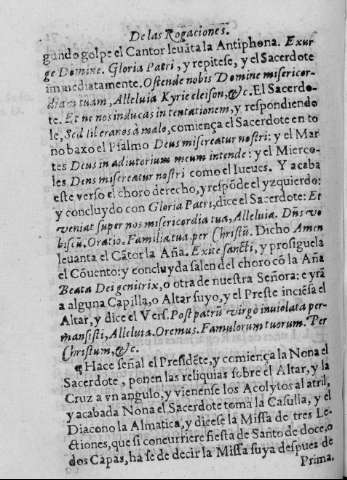 De las Rogaciones.
gundo golpe el Cantor leuãta la Antiphona. Exur
ge Domine. Gloria Patri, y repitese, y el Sacerdote
immediatamente. Ostende nobis Domine misericor-
diam tuam, Alleluia Kyrie eleison, &c. El Sacerdo-
te. Et ne nos inducas in tentationem, y respondiendo
le, Sed libera nos à malo, comiença el Sacerdote en to
no baxo el Psalmo Deus misereatur nostri: y el Mar
tes Deus in adiutorium meum intende: y el Mierco-
les Deus misereatur nostri como el Iueues. Y acaba
este verso el choro derecho, y respõde el yzquierdo:
y concluydo con Gloria Patri, dice el Sacerdote: Et
veniat super nos misericordia tua, Alleluia. Dñs vo
biscũ, Oratio. Familia tua. per Christũ. Dicho Amen
leuanta el Cãtor la Aña. Exite sancti, y prosiguela
el Cõuento: y concluyda salen del choro cõ la Aña
Beata Dei genitrix, o otra de nuestra Señora: e yrã
a alguna Capilla, o Altar suyo, y el Preste inciẽsa el
Altar, y dice el Vers. Post partũ virgo inuiolata per-
mansisti, Alleluia. Oremus. Famulorum tuorum. Per
Christum, &c.
¶ Hace señal el Presidẽte, y comiença la Nona el
Sacerdote, ponen las reliquias sobre el Altar, y la
Cruz a vn angulo, y vienense los Acolytos al atril,
y acabada Nona el Sacerdote toma la Casulla, y el
Diacono la Almatica, y dicese la Missa de tres Le-
ctiones, que si concurriere fiesta de Santo de doce, o
dos Capas, ha se de decir la Missa suya despues de
Prima.